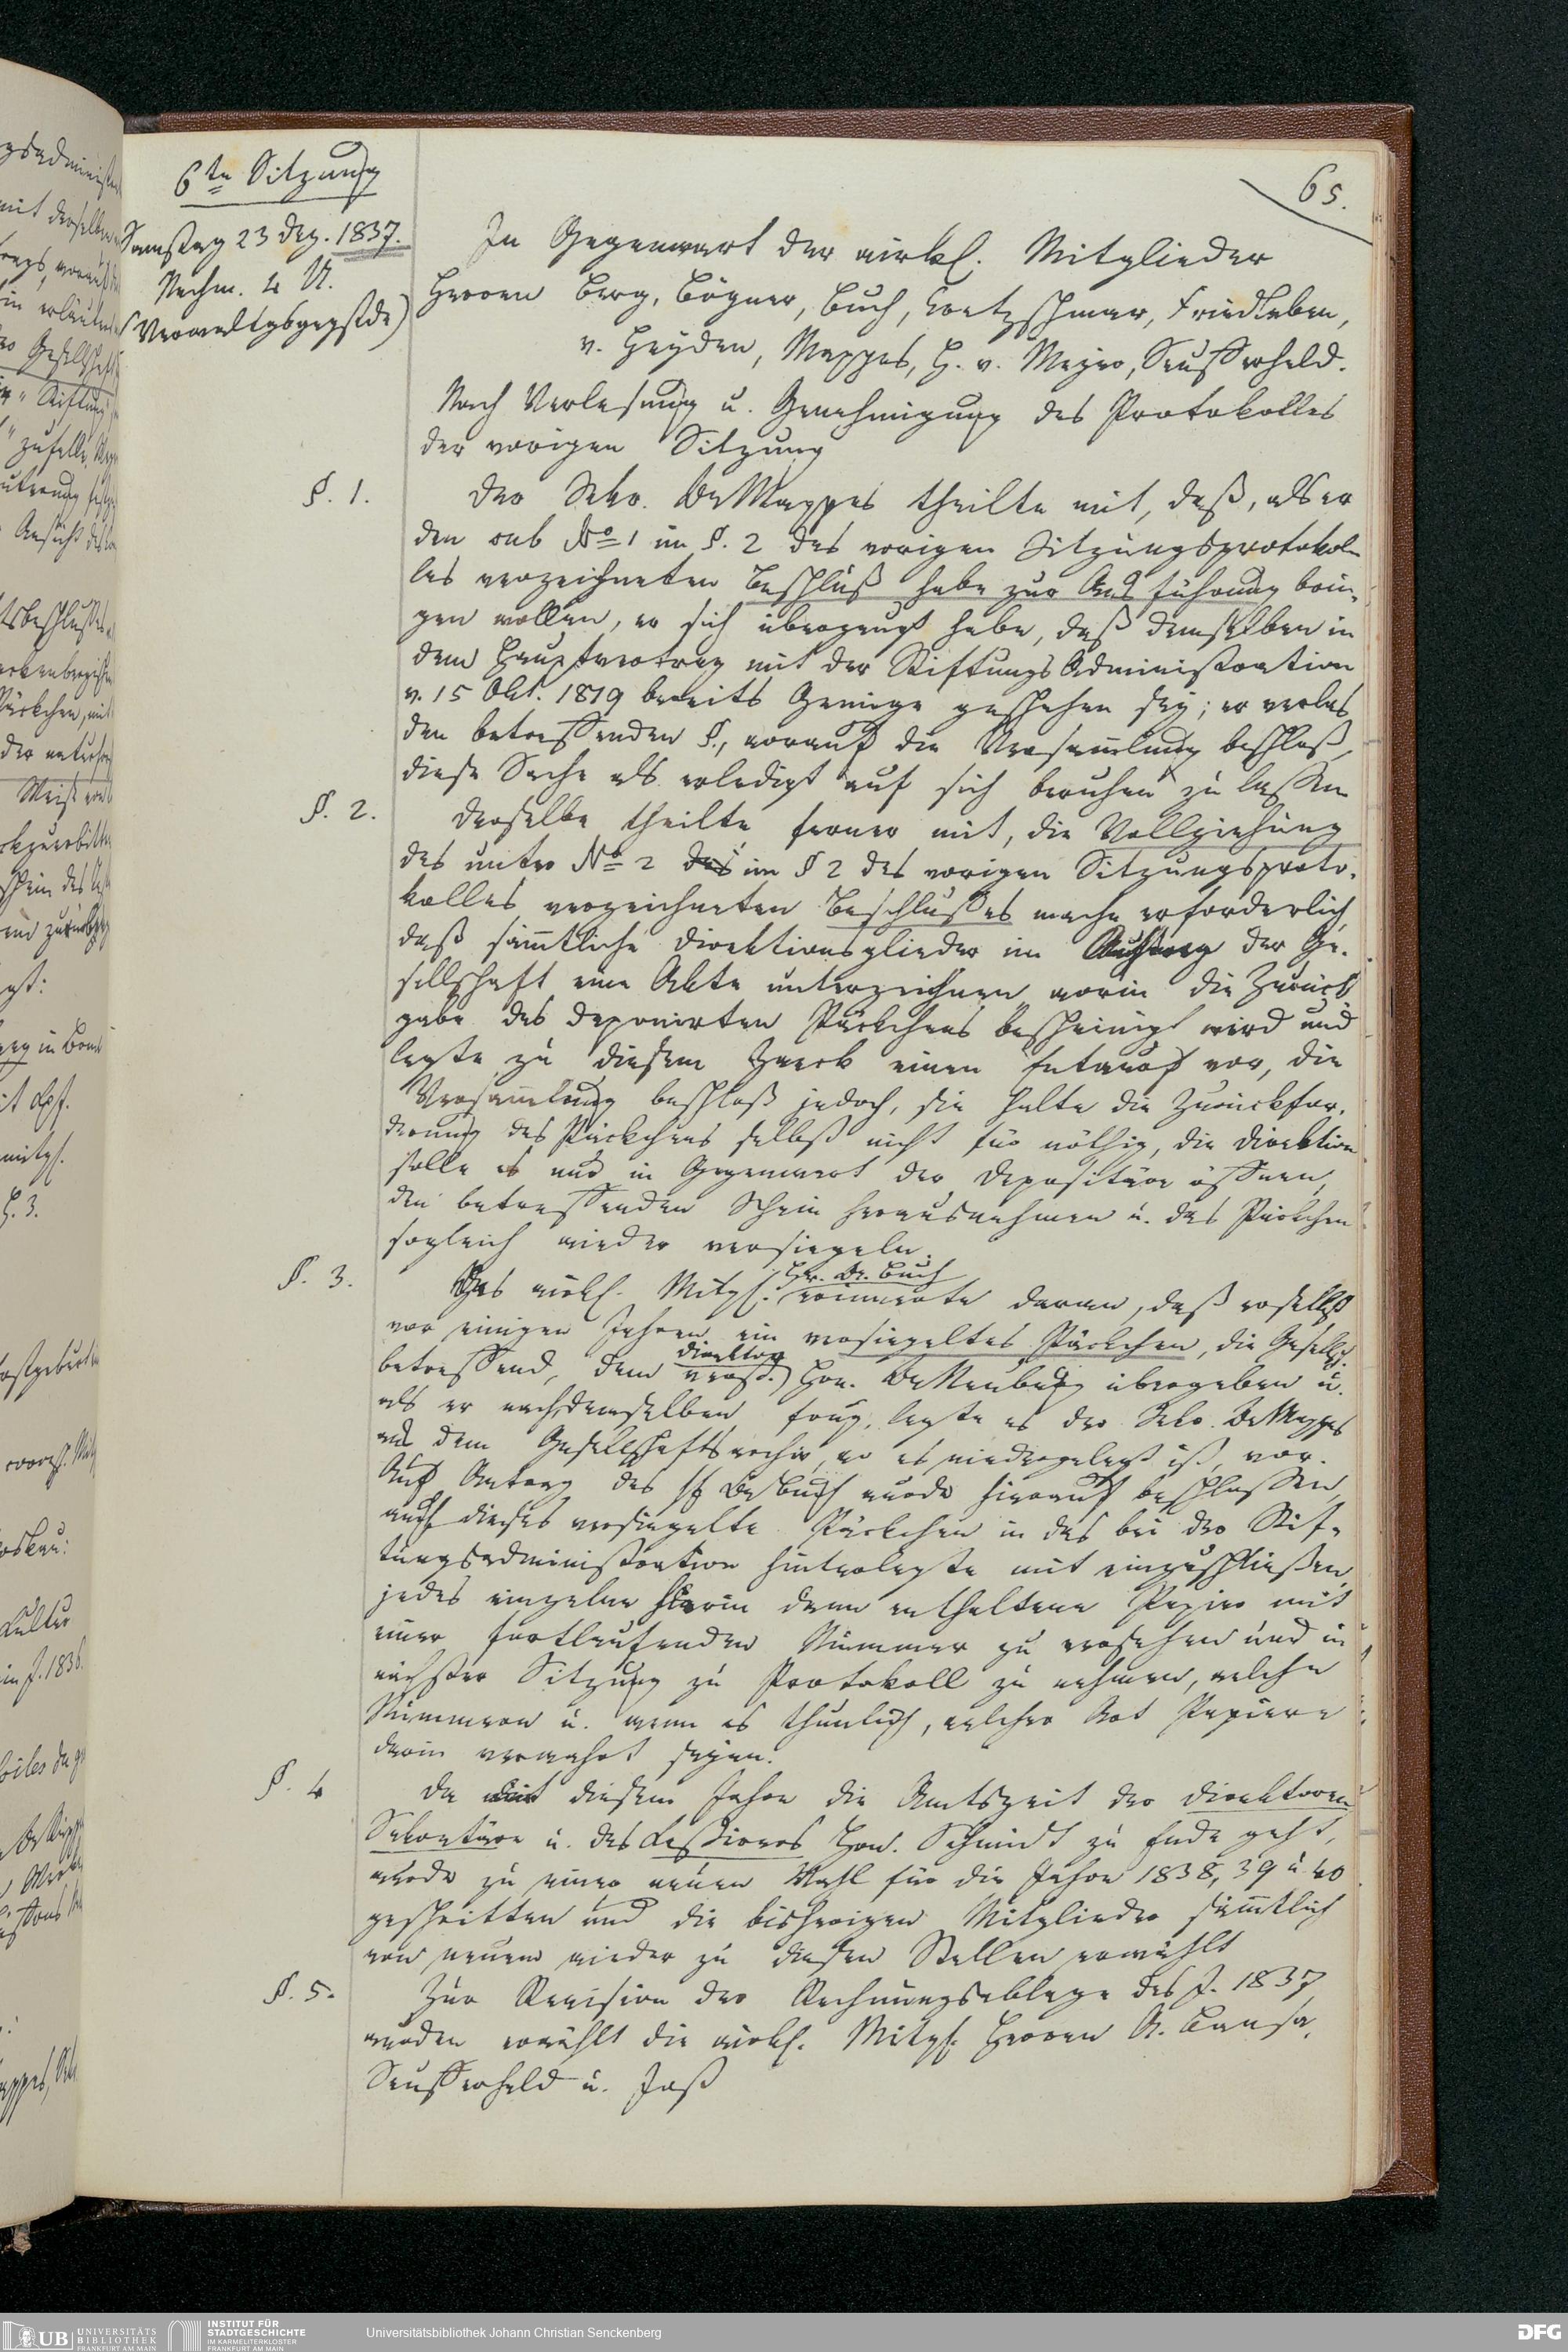 65.
6te Sitzung
Samstag 23 Dez. 1837.
Nachm. 4 U.
(Verwaltgsgegstde)
In Gegenwart der wirkl. Mitglieder
Herren Berg, Bögner, Buch, Cretzschmar, Friedleben,
v. Heyden, Mappes, H. v. Meyer, Seufferheld.
Nach Verlesung u. Genehmigung des Protokolles
der vorigen Sitzung
§. 1.
Der Sekr. Dr Mappes theilte mit, daß, als er
den sub No 1 im §. 2 des vorigen Sitzungsprotokol-
les verzeichneten Beschluß habe zur Ausführung brin-
gen wollen, er sich überzeugt habe, daß demselben in
dem Hauptvertrag mit der Stiftungs Administration
v. 15 Okt. 1819 bereits Genüge geschehen sey; er verlas
den betreffenden §., worauf die Versammlung beschloß,
diese Sache als erledigt auf sich beruhen zu lassen
§. 2.
Derselbe theilte ferner mit, die Vollziehung
des unter No 2 des im § 2 des vorigen Sitzungsproto-
kolles verzeichneten Beschlusses mache erforderlich,
daß sämmtliche Direktionsglieder im Auftrag der Ge-
sellschaft eine Akte unterzeichnen worin die Zurück
gabe des deponirten Päckchens bescheinigt wird und
legte zu diesem Zweck einen Entwurf vor, die
Versammlung beschloß jedoch, sie halte die Zurückfor-
derung des Päckchens selbst nicht für nöthig, die Direktion
solle es nur in Gegenwart der Depositäre öffnen,
den betreffenden Schein herausnehmen u. das Päckchen
sogleich wieder versiegeln.
§. 3.
Das wirkl. Mitgl. Hr. Dr. Buch erinnerte daran, daß er selbst
vor einigen Jahren ein versiegeltes Päckchen, die Gesells.
betreffend, dem verst. Direktor Hrn. Dr Neuburg übergeben u.
als er nach demselben frug, legte es der Sekr. Dr Mappes
aus dem Gesellschaftsarchiv, wo es niedergelegt ist, vor.
Auf Antrag des H Dr Buch wurde hierauf beschlossen,
auch dieses versiegelte Päckchen in das bei der Stif-
tungsadministration hinterlegte mit einzuschließen,
jedes einzelne hierin dann enthaltene Papier mit
einer fortlaufenden Nummer zu versehen und in
nächster Sitzung zu Protokoll zu nehmen, welche
Nummern u. wenn es thunlich, welcher Art Papiere
darin verwahrt seyen.
§. 4
Da mit diesem Jahre die Amtszeit der Direktoren
Sekretäre u. des Kassierers Hrn. Schmidt zu Ende geht,
wurde zu einer neuen Wahl für die Jahre 1838, 39 u 40
geschritten und die bisherigen Mitglieder sämmtlich
von neuem wieder zu diesen Stellen erwählt
§. 5.
Zur Revision der Rechnungsablage des J. 1837
wurden erwählt die wirkl. Mitgl. Herren A. Bansa,
Seufferheld u. Jaß
UB UNIVERSITÄTS
BIBLIOTHEK
FRANKFURT AM MAIN
INSTITUT FÜR
STADTGESCHICHTE
IM KARMELITERKLOSTER
FRANKFURT AM MAIN
Universitätsbibliothek Johann Christian Senckenberg
DFG